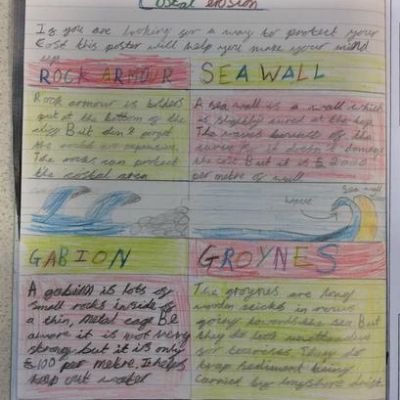 Costal erosion
If you are looking for a way to protect your
Cost this poster will help you make your mind
up
ROCK ARMOUR
Rock armour is bolders
put at the bottom of the
cliff But don't forget
the rocks are expensive.
The rocks can protect
the costal area
SEA WALL
A sea wall is a wall which
is slightly cured at the top.
The waves bounce of the
curve so it doesn't damage
the cost But it is £2000
per metre of wall
Sea wall
wave
GABION
A gabion is lots of
small rocks inside of
a thin, metal cage Be
aware it is not very
strong but it is only
£100 per metre. It helps
keep out water
GROYNES
The groynes are long
wooden sticks in rows
going towards the sea But
they do look unattractive
for tourists. They do
trap sediment being
carried by longshore drift.